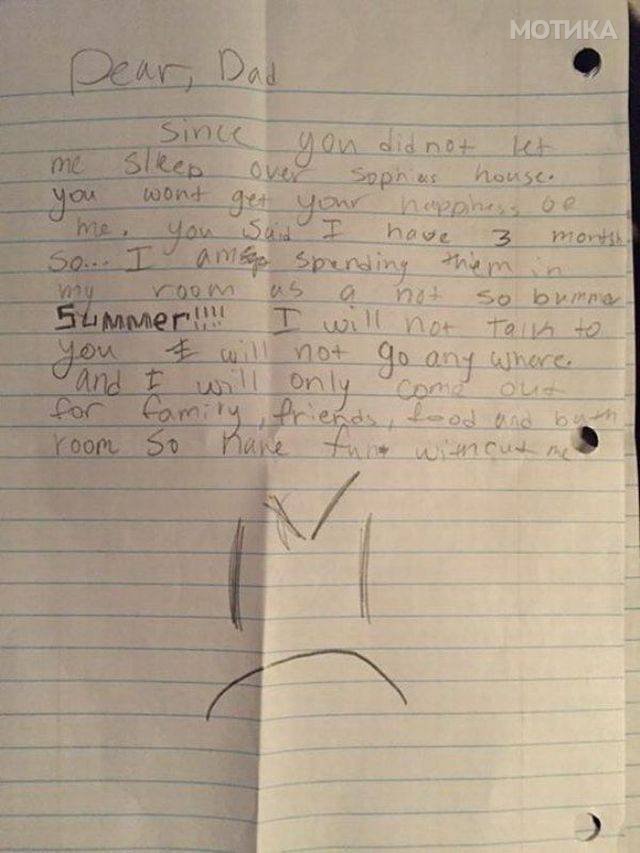 МОТИКА
Dear, Dad
Since you did not let
me sleep over sophias house.
you wont get your happness oe
me. you said I have 3 month
so... I am spending them in
my room as a not so bummer
Summer!!!! I will not talk to
you I will not go any where.
and I will only come out
for family, friends, food and bath
room so have fun without me